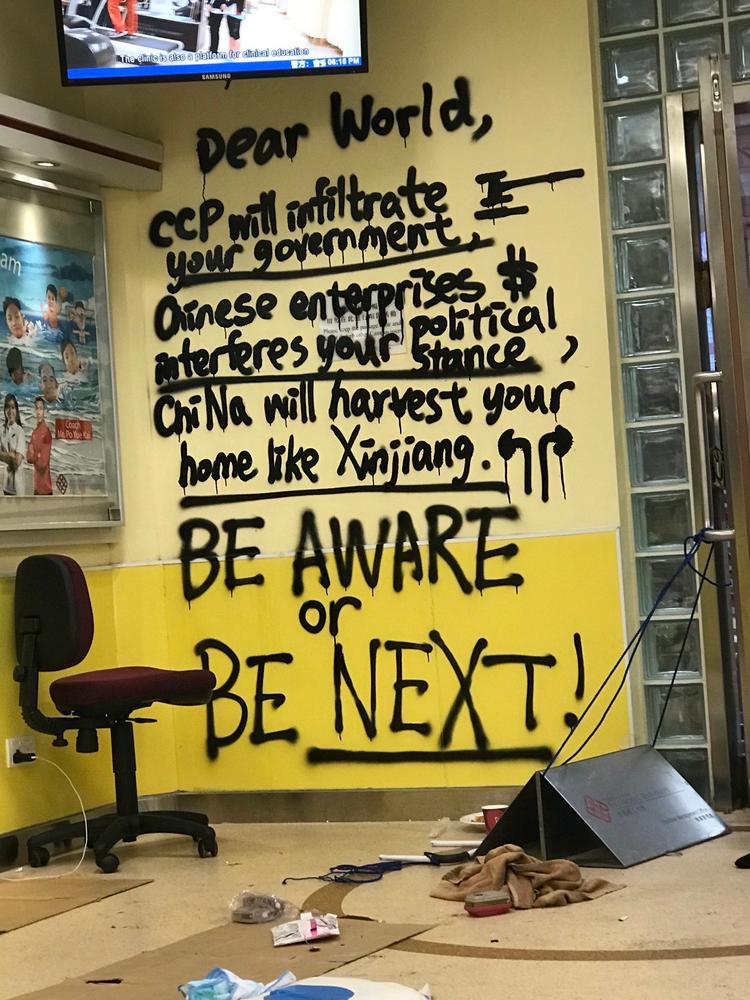 The clinic is also a platform for clinical education
06:16 PM
SAMSUNG
Dear World,
CCP will infiltrate
your government,
Chinese enterprises $
interferes your political
stance,
ChiNa will harvest your
home like Xinjiang.
BE AWARE
or
BE NEXT!
am
Coach